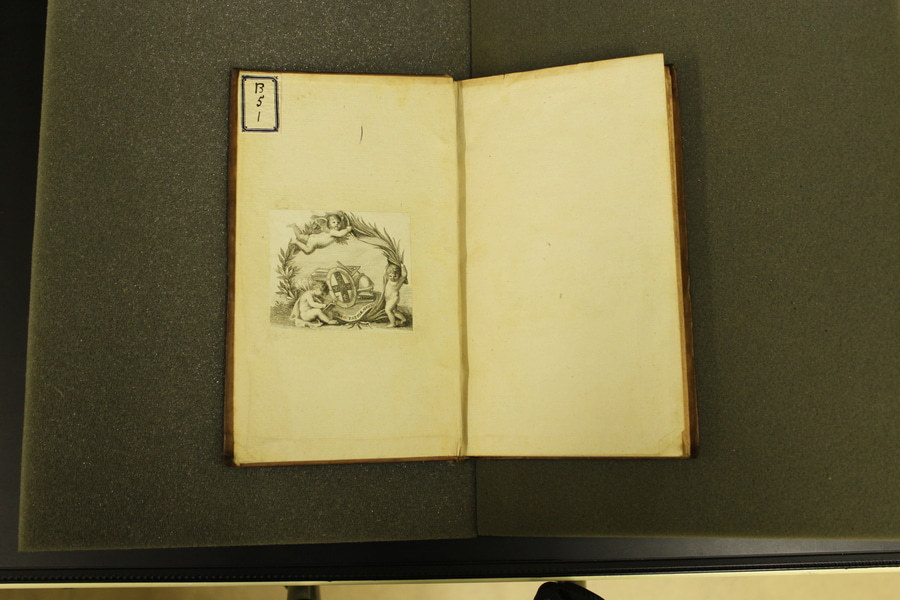 B
5
1